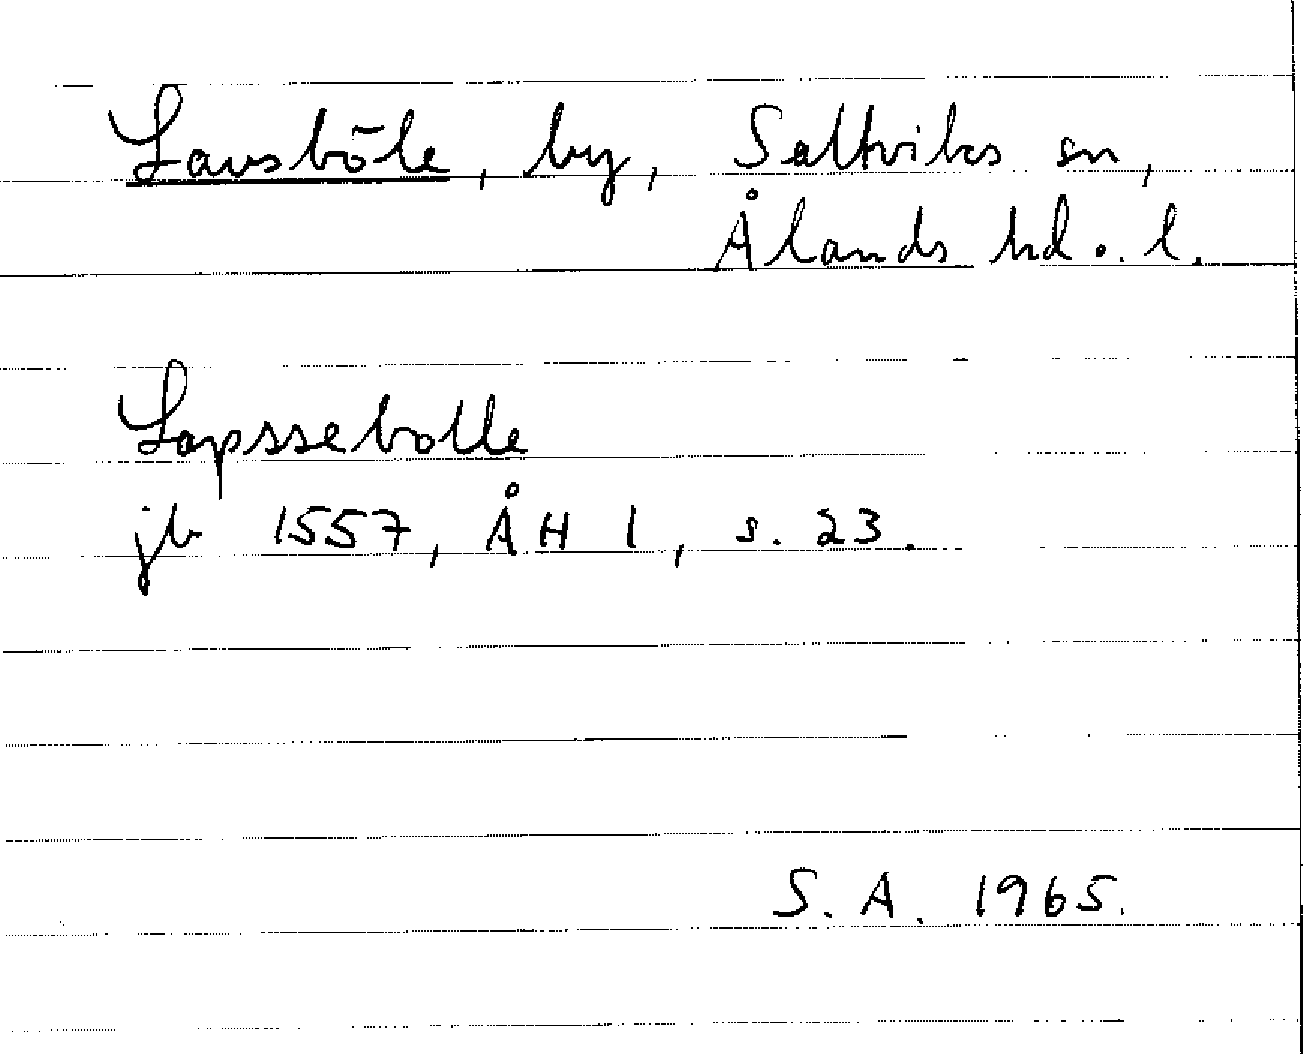 Lavsböle, by, Saltviks sn,
Ålands hd o. l.
Lapssebolle
jb 1557, ÅH 1, s. 23.
S. A. 1965.